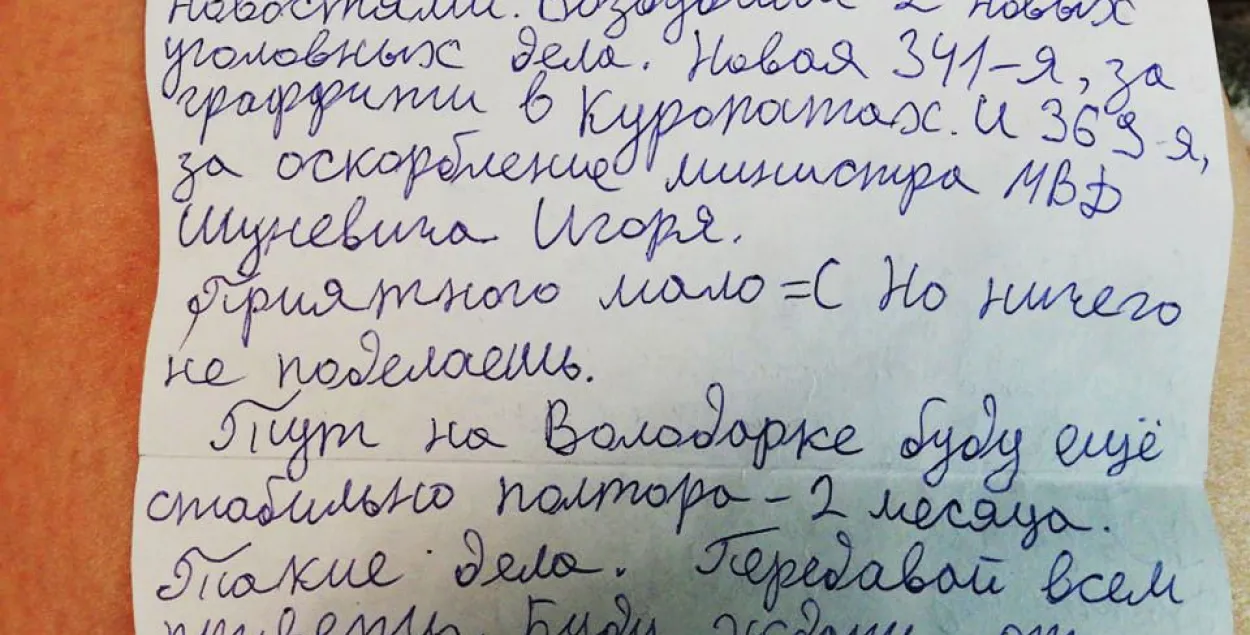 новостями. Возбудили 2 новых
уголовных дела. Новая 341-я, за
граффити в Куропатах. И 369-я,
за оскорбление министра МВД
Шуневича Игоря.
Приятного мало =С Но ничего
не поделаешь.
Тут на Володарке буду ещё
стабильно полтора - 2 месяца.
Такие дела. Передавай всем
приветы. Буду ждать от